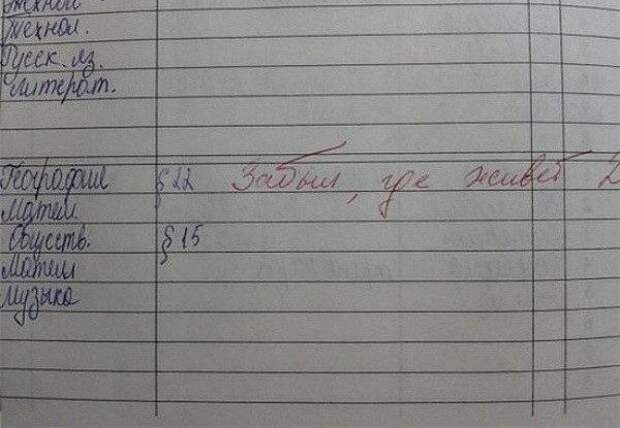 Технол.
Русск. яз.
Литерат.
География § 22 Забыл, где живет 2
Матем.
Обществ. § 15
Матем
Музыка